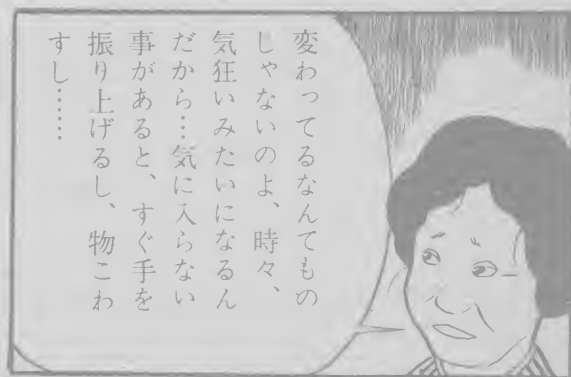 変わってるなんてもの
じゃないのよ、時々、
気狂いみたいになるん
だから…気に入らない
事があると、すぐ手を
振り上げるし、物こわ
すし……